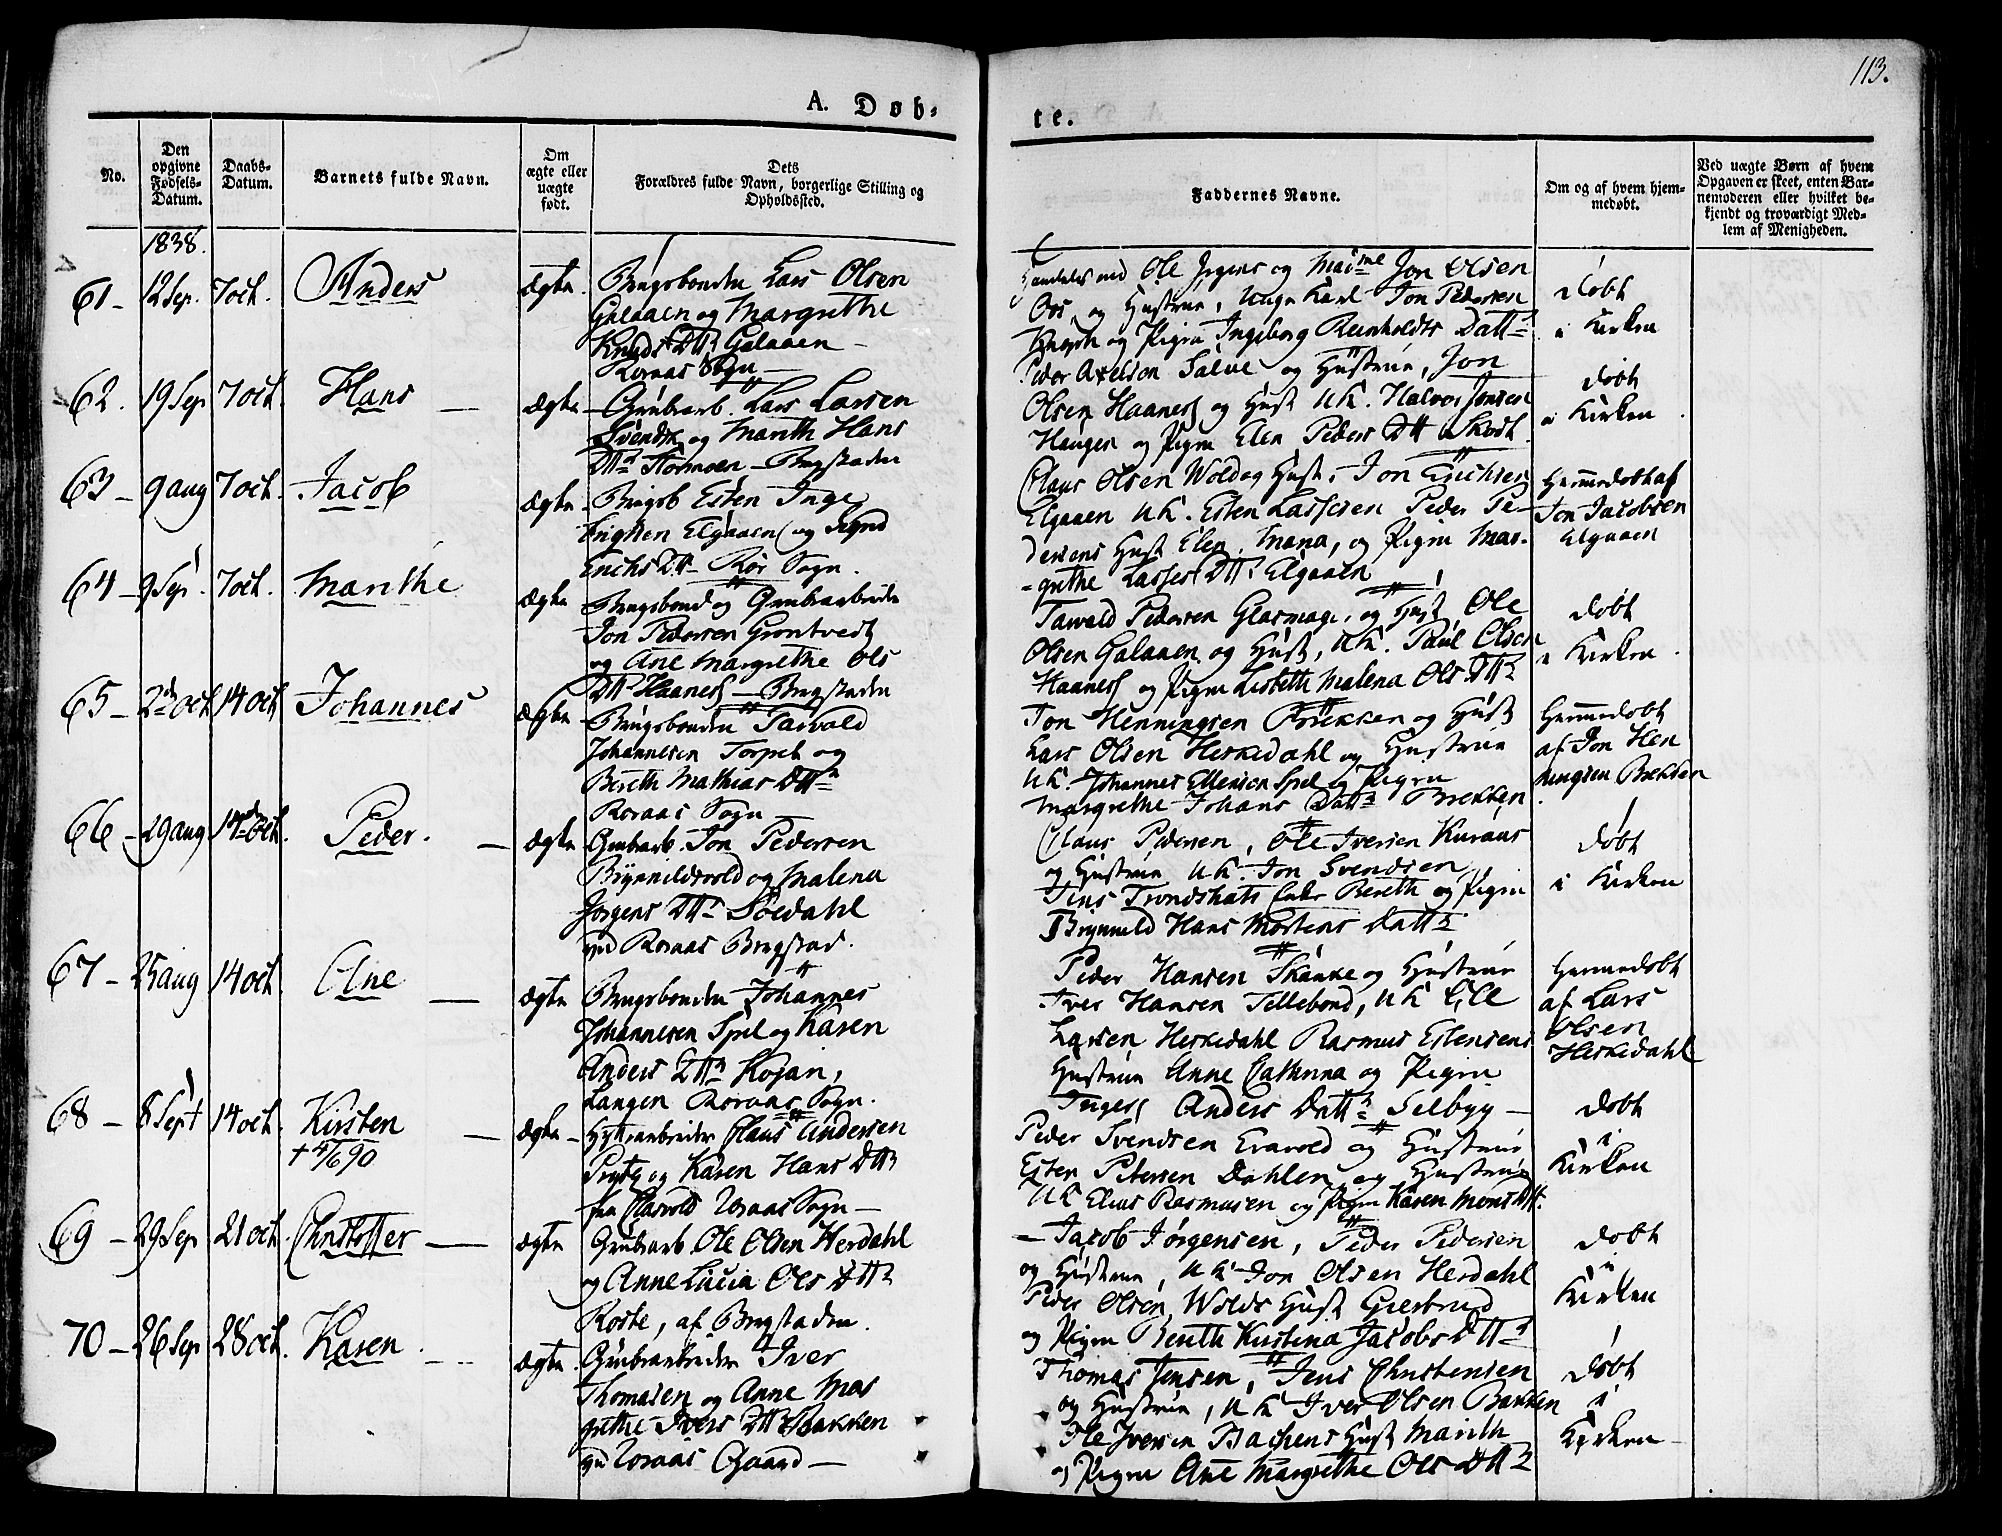 113.
A. Døb-
te.
No.
Den opgivne Fødsels-Datum.
Daabs-Datum.
Barnets fulde Navn.
Om ægte eller uægte født.
Dets Forældres fulde Navn, borgerlige Stilling og Opholdssted.
Faddernes Navne.
Om og af hvem hjem-medøbt.
Ved uægte Børn af hvem Opgaven er skeet, enten Bar-nemoderen eller hvilket be-kjendt og troværdigt Med-lem af Menigheden.
1838.
61 - 12 Sep. 7 oct. Anders ægte
Brugsbonden Lars Olsen
Galaaen og Margrethe
Knuds Dttr Galaaen -
Røraas Sogn -
Ole Jrgens og Madme Jon Olsen
Os, og Hustrue, Unge Karl Jon Pedersen
og Pigen Ingeborg Reinholdts Dattr
døbt
i Kirken
62. 19 Sep 7 oct. Hans - ægte
Grubearb. Lars Larsen
Svendsk og Marith Hans
Dttr Stormoen - Bergstaden
Peder Axelsen Salve og Hustrue, Jon
Olsen Haanes og Hust UK. Halvor Jonsen
Haugen og Pigen Elen Peders Dtt
døbt
i Kirken
63 - 9 aug 7 oct. Jacob ægte
Brugsb Esten Inge
brigtsen Elgaaen og Sigrid
Erichs Dtt - Rør Sogn.
Claus Olsen Wold og Hust. Jon Erichsen
Elgaaen UK. Esten Lassesen Peder Pe-
dersens Hust Elen, Mana, og Pigen Mar-
-grethe Lasses Dttr Elgaaen
Hjemmedøbt af
Jon Jacobsen
Elgaaen
64 - 9 Sep. 7 oct. Marithe ægte
Brugsbond og Grubearbeider
Jon Pedersen Grøntvedt
og Ane Margrethe Ols
Dttr Haanes - Bergstaden
Tarvald Pedersen Glasmager, og Hust Ole
Olsen Galaaen og Hust, UK. Paul Olsen
Haanes og Pigen Lisbeth Malena Ols Dttr
døbt
i Kirken.
65 - 2de oct 14 oct Johannes ægte
Brugsbonden Tarvald
Johannesen Torpet og
Bereth Mathias Dttr
Røraas Sogn
Jon Henningsen Brekken og Hust
Lars Olsen Herkedahl og Hustrue
UK. Johannes Ellensen Spel og Pigen
Margrethe Johans Dattr Brekken
Hjemmedøbt
af Jon Hen
ningsen Brekken
66 - 29 aug 14de oct. Peder. - ægte
Grubearb. Jon Pedersen
Brynnildsvold og Malena
Jørgens Dttr Søedahl
ved Røraas Bergstad.
Claus Pedersen, Ole Iversen Kuraas
og Hustrue UK. Jon Svendsen
Jens Trondshart Bereth og Pigen
Brynnild Hans Mortens Dattr
døbt
i Kirken
67 - 25 aug 14 oct. Ane - ægte
Brugsbonden Johannes
Johannesen Spel og Karen
Anders Dttr Kojan,
Langen Røraas Sogn.
Peder Hansen Skanke og Hustrue
Iver Hansen Tellebond, UK Ole
Larsen Herkedahl Rasmus Estensens
Hustrue Anne Cathrina og Pigen
Anders Dattr Selbyg -
Hjemmedøbt
af Lars
Olsen
Herkedahl
68 - 8 Sept 14 oct. Kirsten - ægte -
+ 4/6 90
Hytteearbeider Claus Andersen
og Karen Hans Dttr
fra Røraas Sogn -
Peder Svendsen Evavold og Hustrue
Esten Petersen Dahlen og Hustrue
UK Elias Rasmusen og Pigen Karen Mons Dtt.
døbt
i
Kirken
69 - 29 Sep 21 oct. Christoffer - ægte
Grubearb Ole Olsen Herdahl
og Anne Lucia Ols Dttr
Roste, af Bergstaden.
- Jacob Jørgensen, Peder Pedersen
og Hustrue, UK Jon Olsen Herdahl
Peder Olsen Wolds Hust Giertrud
og Pigen Bereth Kirstina Jacobs Dttr
døbt
i
Kirken
70 - 26 Sep 28 oct. Karen ægte.
Grubearbeider Iver
Thomasen og Anne Mar
grethe Ivers Dttr Bakken
ved Røraas Gaard -
Thomas Jensen, Jens Christensen
og Hustrue, UK Iver Olsen Bakken
Ole Iversen Bachens Hust Marith
og Pigen Ane Margrethe Ols Dttr
døbt
i
Kirken